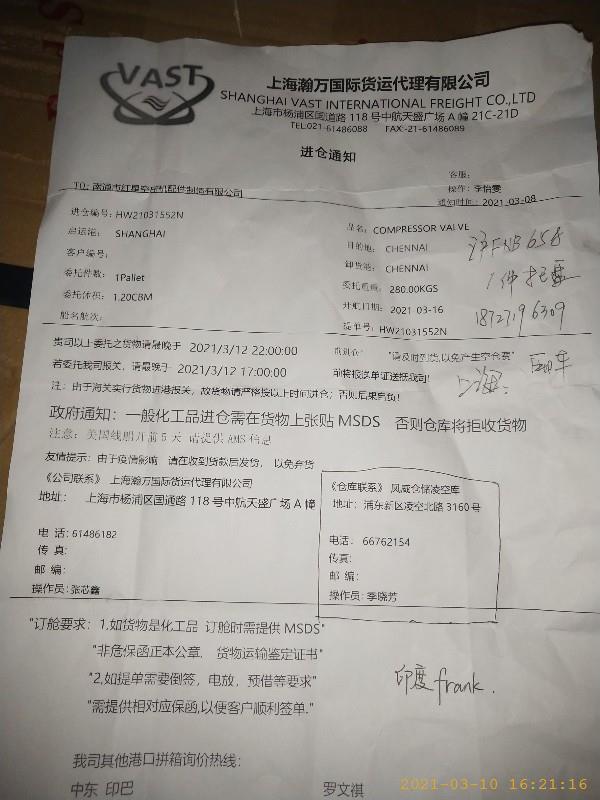 VAST
上海瀚万国际货运代理有限公司
SHANGHAI VAST INTERNATIONAL FREIGHT CO.,LTD
上海市杨浦区国道路 118 号中航天盛广场 A 幢 21C-21D
TEL:021-61486088 FAX:-21-61486089
进仓通知
客服:
TO: 南通市红星空压机配件制造有限公司
操作: 李怡雯
通知时间: 2021-03-08
进仓编号: HW21031552N
品名: COMPRESSOR VALVE
启运港: SHANGHAI
目的地: CHENNAI
沪FNB658
客户编号:
卸货港: CHENNAI
1件托盘
委托件数: 1Pallet
委托重量: 280.00KGS
委托体积: 1.20CBM
开航日期: 2021 03-16
船名航次:
提单号: HW21031552N
贵司以上委托之货物请最晚于 2021/3/12 22:00:00
前进仓 "请及时到货,以免产生空仓费"
若委托我司报关, 请最晚于 2021/3/12 17:00:00
前将报关单证送抵我司!
上海:
注: 由于海关实行货物进港报关, 故货物请严格按以上时间进仓; 否则后果自负!
政府通知: 一般化工品进仓需在货物上张贴 MSDS 否则仓库将拒收货物
注意: 美国线船开前 5 天 请提供 AMS 信息
友情提示: 由于疫情影响 请在收到货款后发货, 以免弃货
《公司联系》 上海瀚万国际货运代理有限公司
地址: 上海市杨浦区国通路 118 号中航天盛广场 A 幢
电 话: 61486182
传 真:
邮 编:
操作员: 张芯鑫
《仓库联系》 凤威仓储凌空库
地址: 浦东新区凌空北路 3160 号
电话: 66762154
传真:
邮 编:
操作员: 季晓芳
"订舱要求: 1,如货物是化工品 订舱时需提供 MSDS"
"非危保函正本公章, 货物运输鉴定证书"
"2,如提单需要倒签, 电放, 预借等要求"
印度frank.
"需提供相对应保函,以便客户顺利签单."
我司其他港口拼箱询价热线:
中东 印巴 罗文祺
2021-03-10 16:21:16